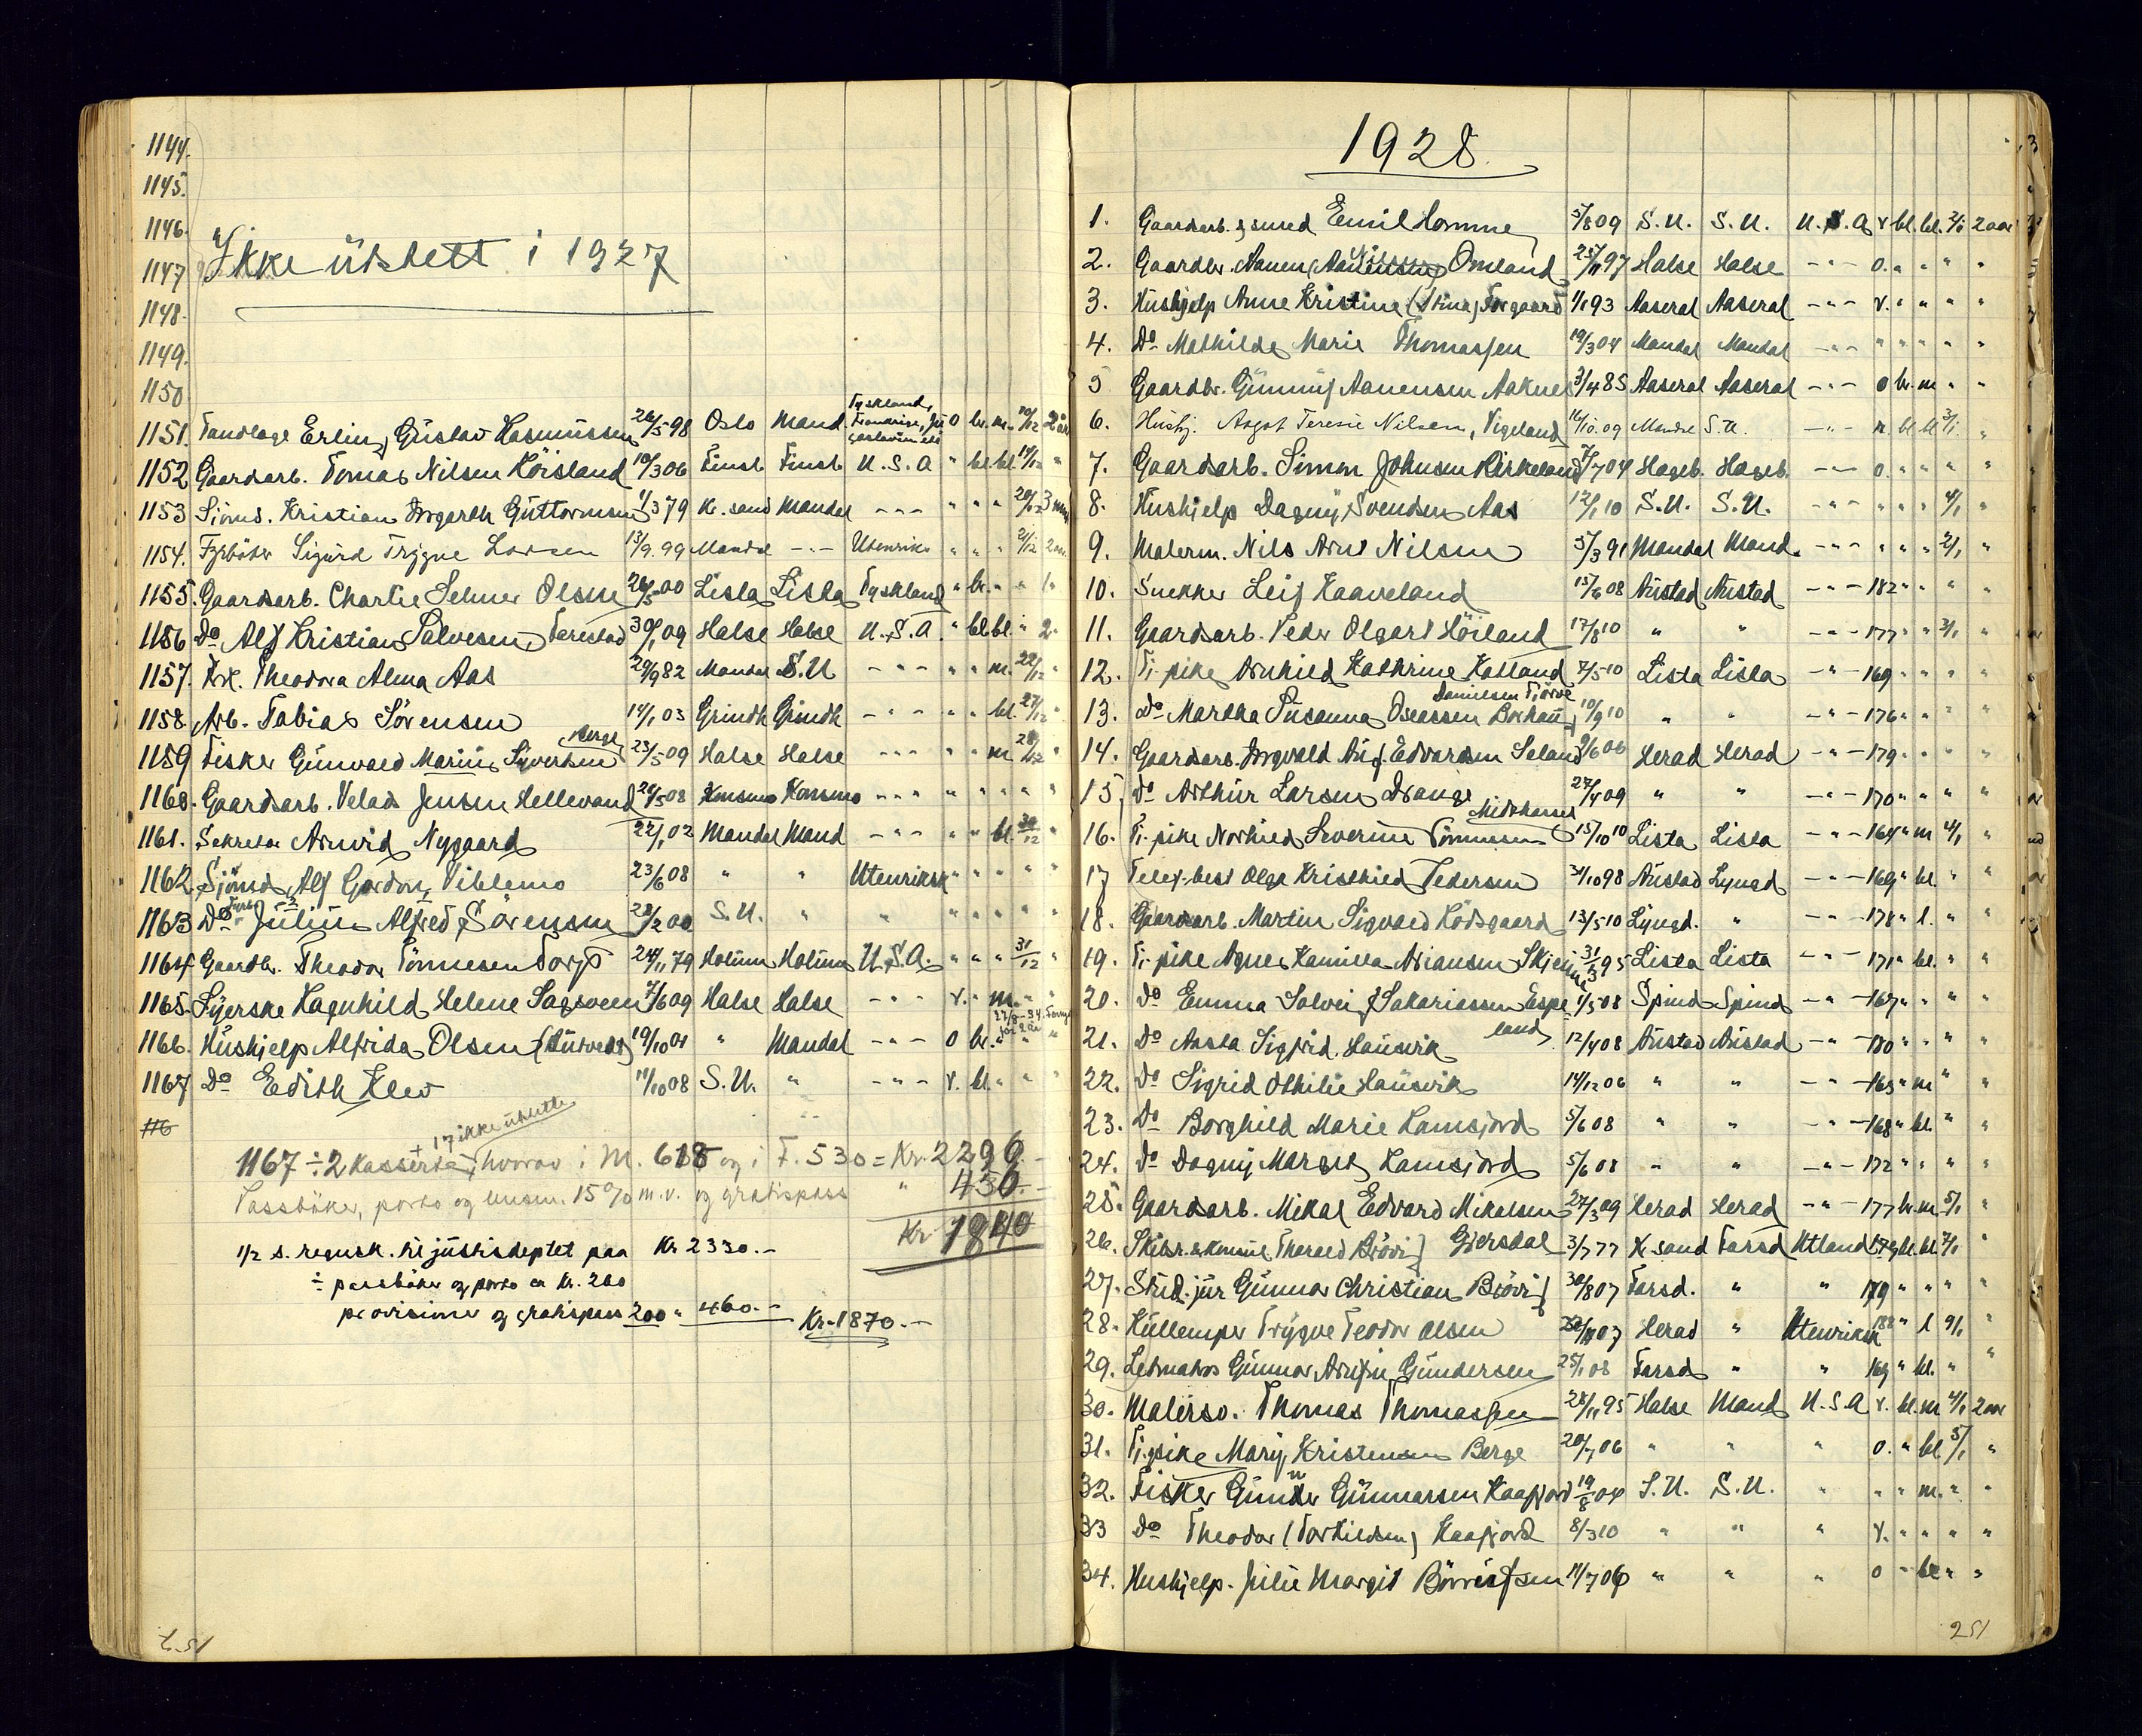 1144.
1145.
1146.
1147
1148.
1149.
1150
Ikke utstett i 1927
1151. Tandlæge Erling Gustav Rasmussen 26/5 98 Oslo Mand Tyskland, Frankrige, O br. m. 10/12 2 år
1152 Gaardsarb. Tomas Nilsen Höisland 10/3 06 Finsl. Finsl. U.S.A " bl. bl. "
1153 Sjömd. Kristian Ingarth Guttormsen 1/3 79 Kr. sand Mandal - " - " " " 20/12 3 mnd
1154. Fyrböter Sigurd Trygve Larsen 13/9. 99 Mandal - " - Utenriks " " " 21/12
1155. Gaardsarb. Charlie Selmer Olsen 26/5 00 Lista Lista Tyskland " br. " "
1156 Do Alf Kristian Salvesen, Tarestad 30/1 09 Halse Halse U.S.A. " bl. bl. " 2 "
1157. Frk. Theodora Alma Aas 29/9 82 Mandal S.U - " - " " m. 22/12 "
1158 Arb. Tobias Sörensen 14/1 03 Grindh Grindh - " - " " bl. 27/12 "
1159 Fisker Gunvald Marius Syvertsen Berge 23/5 09 Halse Halse - " - " " m 28/12 "
1160. Gaardsarb. Velas Jensen Hellevand 20/5 08 Konsmo Konsmo - " - " " " " "
1161. Sekretær Arnvid Nygaard 22/1 02 Mandal Mand - " - " " bl. 30/12 "
1162 Sjömd. Alf Gordon Viblemo 23/6 08 " " Utenriksk " " " " "
1163 Do Julius Alfred Sörensen 28/2 00 S.U. " " " " " " "
1164. Gaardbr. Theodor Tönnesen Torp 24/11 79 Holum Holum U.S.A. " " " 31/12 "
1165. Syerske Ragnhild Helene Sagsveen 7/6 09 Halse Halse - " - r. " m. "
1166. Hushjelp Alfrida Olsen 19/10 01 " Mandal - " - O br. " " "
1167 Do Edith Klev 11/10 08 S.U. " - " - r. bl. " " "
116
+ 17 ikke utstette
1167 ÷ 2 kasserte, hvorav i M. 618 og i F. 530 = Kr. 2296.-
Passböker, porto og 15% m.v. og gratispass " 456.-
Kr. 1840
1/2 s. regnsk. til justisdeptet paa Kr 2330.-
÷ passböker og porto ca Kr. 260
provisioner og gratispass 200 " 460.- Kr. 1870.-
251
1928
1. Gaardarb. & smed Emil Homme 5/8 09 S.U. S.U. U.S.A r. bl. bl. 2/1 2 aar
2. Gaardbr. Aanen Omland 25/11 97 Halse Halse - " - o. " " " "
3. Hushjelp Anne Kristine (Stina) Torgaard 1/1 93 Aaseral Aaseral - " - r. " " " "
4. Do Mathilde Marie Thomassen 19/3 04 Mandal Mandal - " - " " " " "
5 Gaardbr. Gunnuf Aanensen Aaknes 3/4 85 Aaseral Aaseral - " - o br. m " "
6. Hushj. Asgot Teresie Nilsen, Vigeland 16/10. 09 Mandal S.U. - " - r bl bl 3/1. "
7. Gaardsarb. Simen Johnsen Kirkeland 7/7 04 Hægeb. Hægeb. - " - o. " " " "
8. Hushjelp Dagny Svendsen Aas 12/1 10 S.U. S.U. - " - " " " 4/1 "
9. Malerm. Nils Arnt Nilsen 5/3 91 Mandal Mand. - " - " " " 2/1 "
10. Snekker Leif Haaveland 15/6 08 Austad Austad - " - 182 " " " "
11. Gaardsarb. Peder Olgart Höiland 17/8 10 " " - " - 177 " " 3/1 "
12. Tj. pike Arnhild Kathrine Hatland 7/5 10 Lista Lista - " - 169 " " " "
13. Do Martha Susanna Oseassen Borhaug Danielsen Tjörve 10/9 10 " " - " - 176 " " " "
14. Gaardsarb. Ingvald Edvardsen Seland 9/6 06 Herad Herad - " - 179 " " " "
15. Do Arthur Larsen Drange 27/4 09 " " - " - 170 " " " "
16. Tj. pike Norhild Severine Tönnesen Midthassel 15/10 10 Lista Lista - " - 164 " m 4/1 "
17 Telef. best Olga Kristhild Pedersen 31/10 98 Austad Lyngd - " - 169 " bl. " "
18. Gaardsarb. Martin Sigvald Rödsgaard 13/5 10 Lyngd. " - " - 178 " l. " "
19. Tj. pike Agnes Kamilla Ariansen 31/3 95 Lista Lista - " - 171 " bl. " "
20. Do Emma Solveig Sakariassen Espeland 1/5 08 Spind Spind - " - 167 " " " "
21. Do Aasta Sigfrid. Hausvik 12/4 08 Austad Austad - " - 180 " " " "
22. Do Sigrid Othilie Hausvik 14/12 06 " " - " - 163 " m " "
23. Do Borghild Marie Ramsfjord 5/6 08 " " - " - 168 " bl. " "
24. Do Dagny Margit Ramsfjord 5/6 08 " " - " - 172 " " " "
25. Gaardsarb. Mikal Edvard Mikalsen 27/3 09 Herad Herad - " - 177 br. m. 5/1 "
26. Skibsr. & konsul. Tharald Brövig Gjersdal 3/7 77 K. sand Farsd Utland 179 bl. bl. 7/1 "
27. Stud. jur Gunnar Christian Brövig 30/8 07 Farsd. " " 179 " " " "
28. Hullemper Trygve Teodor Olsen 07 Herad " Utenriksk 182 " l 9/1 "
29. Letmatros Gunnar Arnfin Gundersen 25/1 08 Farsd " " 169 " bl. " "
30. Malersv. Thomas Thomassen 28/11 95 Halse Mand U.S.A r. bl. m 4/1 2 aar
31. Tj. pike Mary Kristensen Berge 20/7 06 " " " o. " bl. 5/1 "
32. Fisker Gunnar Gunnarsen Haafjord 19/8 04 S.U. S.U. " " " m. " "
33 Do Theodor (Torkildsen) Haafjord 8/3 10 " " " r. " " " "
34. Hushjelp. Julie Margit Börresen 11/7 06 " " " o " bl. " "
251